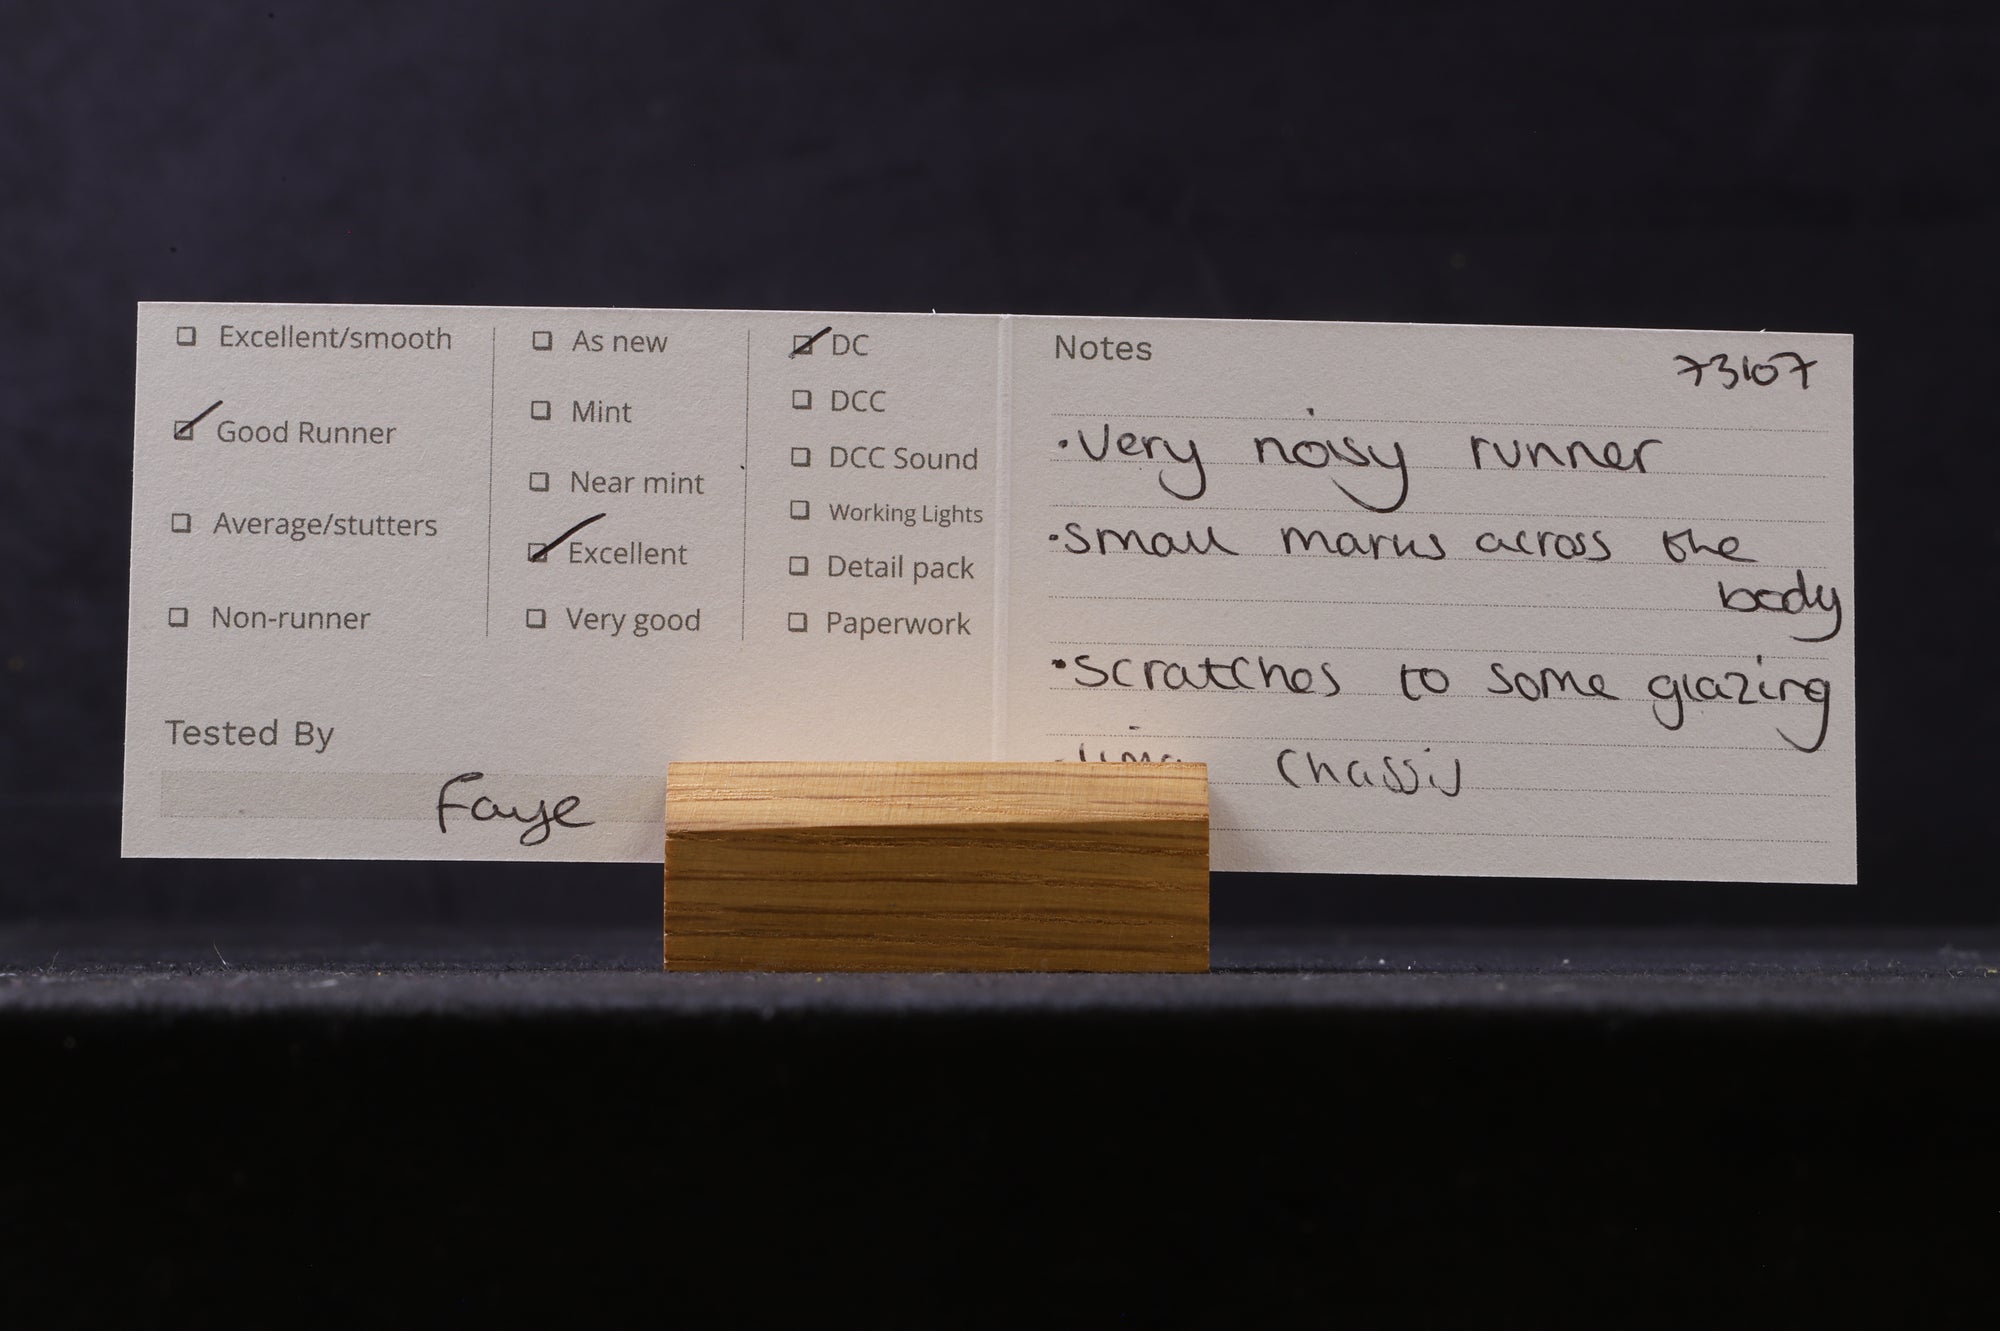 Excellent/smooth
Good Runner
Average/stutters
Non-runner
As new
Mint
Near mint
Excellent
Very good
DC
DCC
DCC Sound
Working Lights
Detail pack
Paperwork
Tested By
Faye
Notes
73107
•Very noisy runner
•small marks across the
body
•scratches to some glazing
chassis